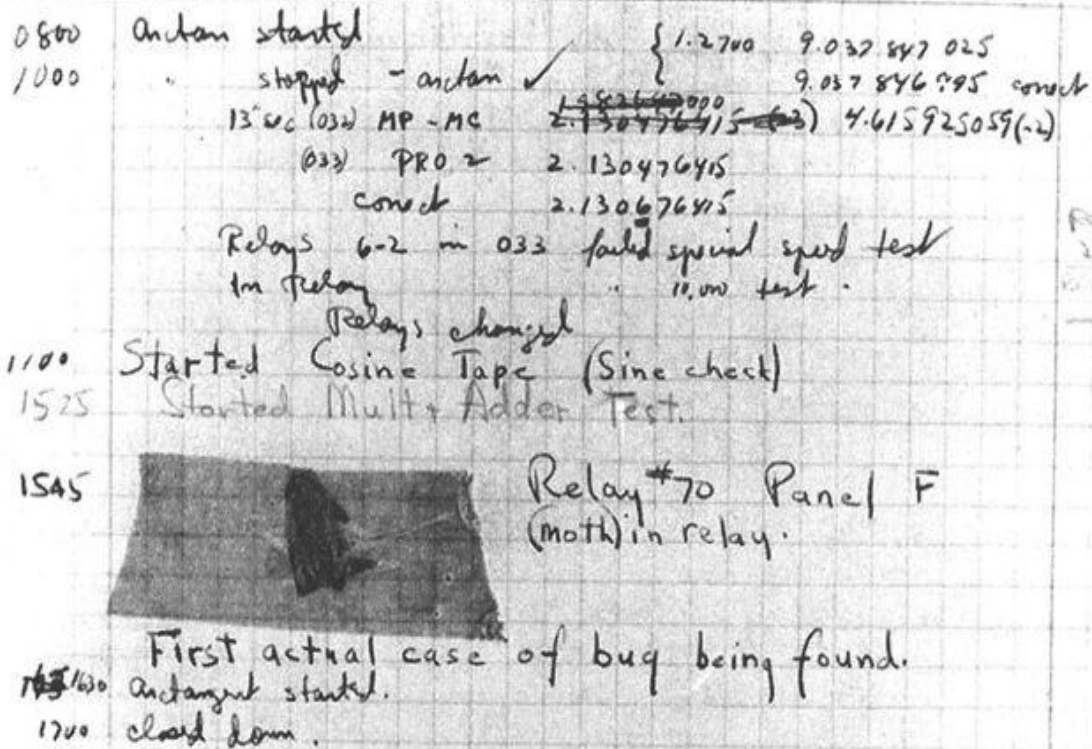 0800 antan started { 1.2700 9.037 847 025
1000 " stopped - antan ✓ 9.037 846 795 conect
13" sec (032) MP - MC 2.130476415 (-3) 4.615925059(-2)
(033) PRO 2 2.130476415
conect 2.130676415
Relays 6-2 in 033 failed special speed test
In Relay " 10,000 test .
Relays changed
1100 Started Cosine Tape (Sine check)
1525 Started Mult + Adder Test.
1545 Relay #70 Panel F
(moth) in relay.
First actual case of bug being found.
1630 antangent started.
1700 closed down .